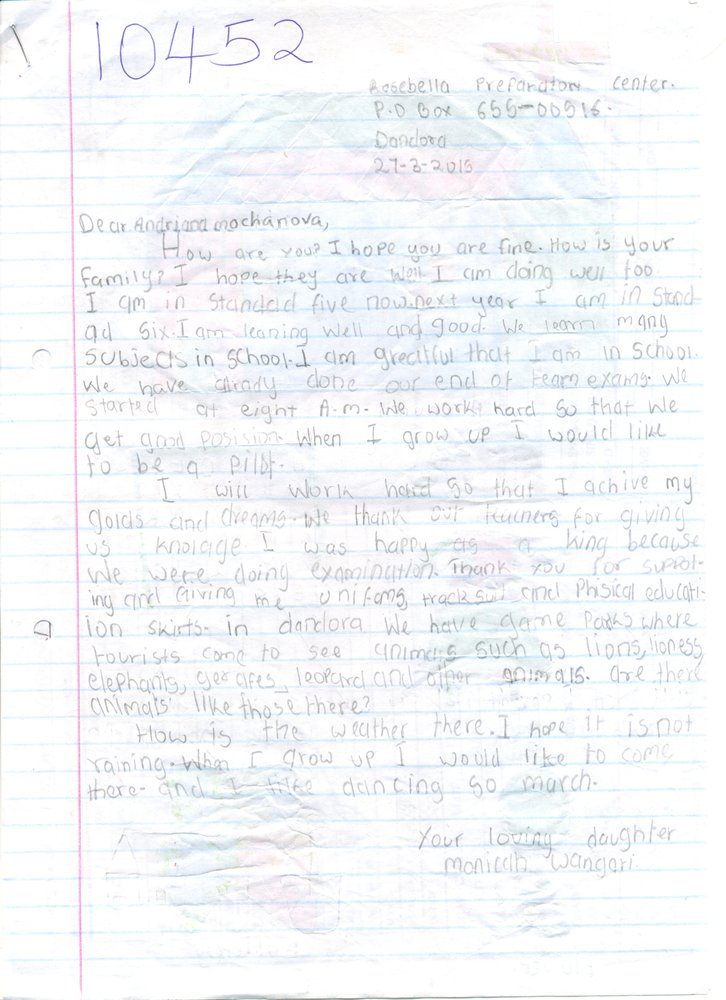 10452
Rosebella Preparatory Center.
P.O Box 655-00516.
Dandora
27-3-2015
Dear Andriana mochanova,
How are you? I hope you are fine. How is your
family? I hope they are well. I am doing well too
I am in Standad five now.next year I am in Stand-
ad Six. I am leaning well and good. We learn many
Subjects in School. I am greatful that I am in School.
We have alrady done our end of team exams. We
started at eight A.m. We work hard so that we
get good posision. When I grow up I would like
to be a pilot.
I will work hard so that I achive my
golds and dreams. We thank our teachers for giving
us knolage I was happy as a king because
We were doing examination. Thank you for suppot-
ing and Giving me unifoms, track suit and Phisical educati-
ion skirts. in dandora We have game Parks where
tourists come to see animals such as lions, lioness,
elephants, gerafes, leopard and other animals. are there
animals like those there?
How is the weather there. I hope it is not
raining. When I grow up I would like to come
there. and I like dancing so march.
Your loving daughter
monicah wangari.